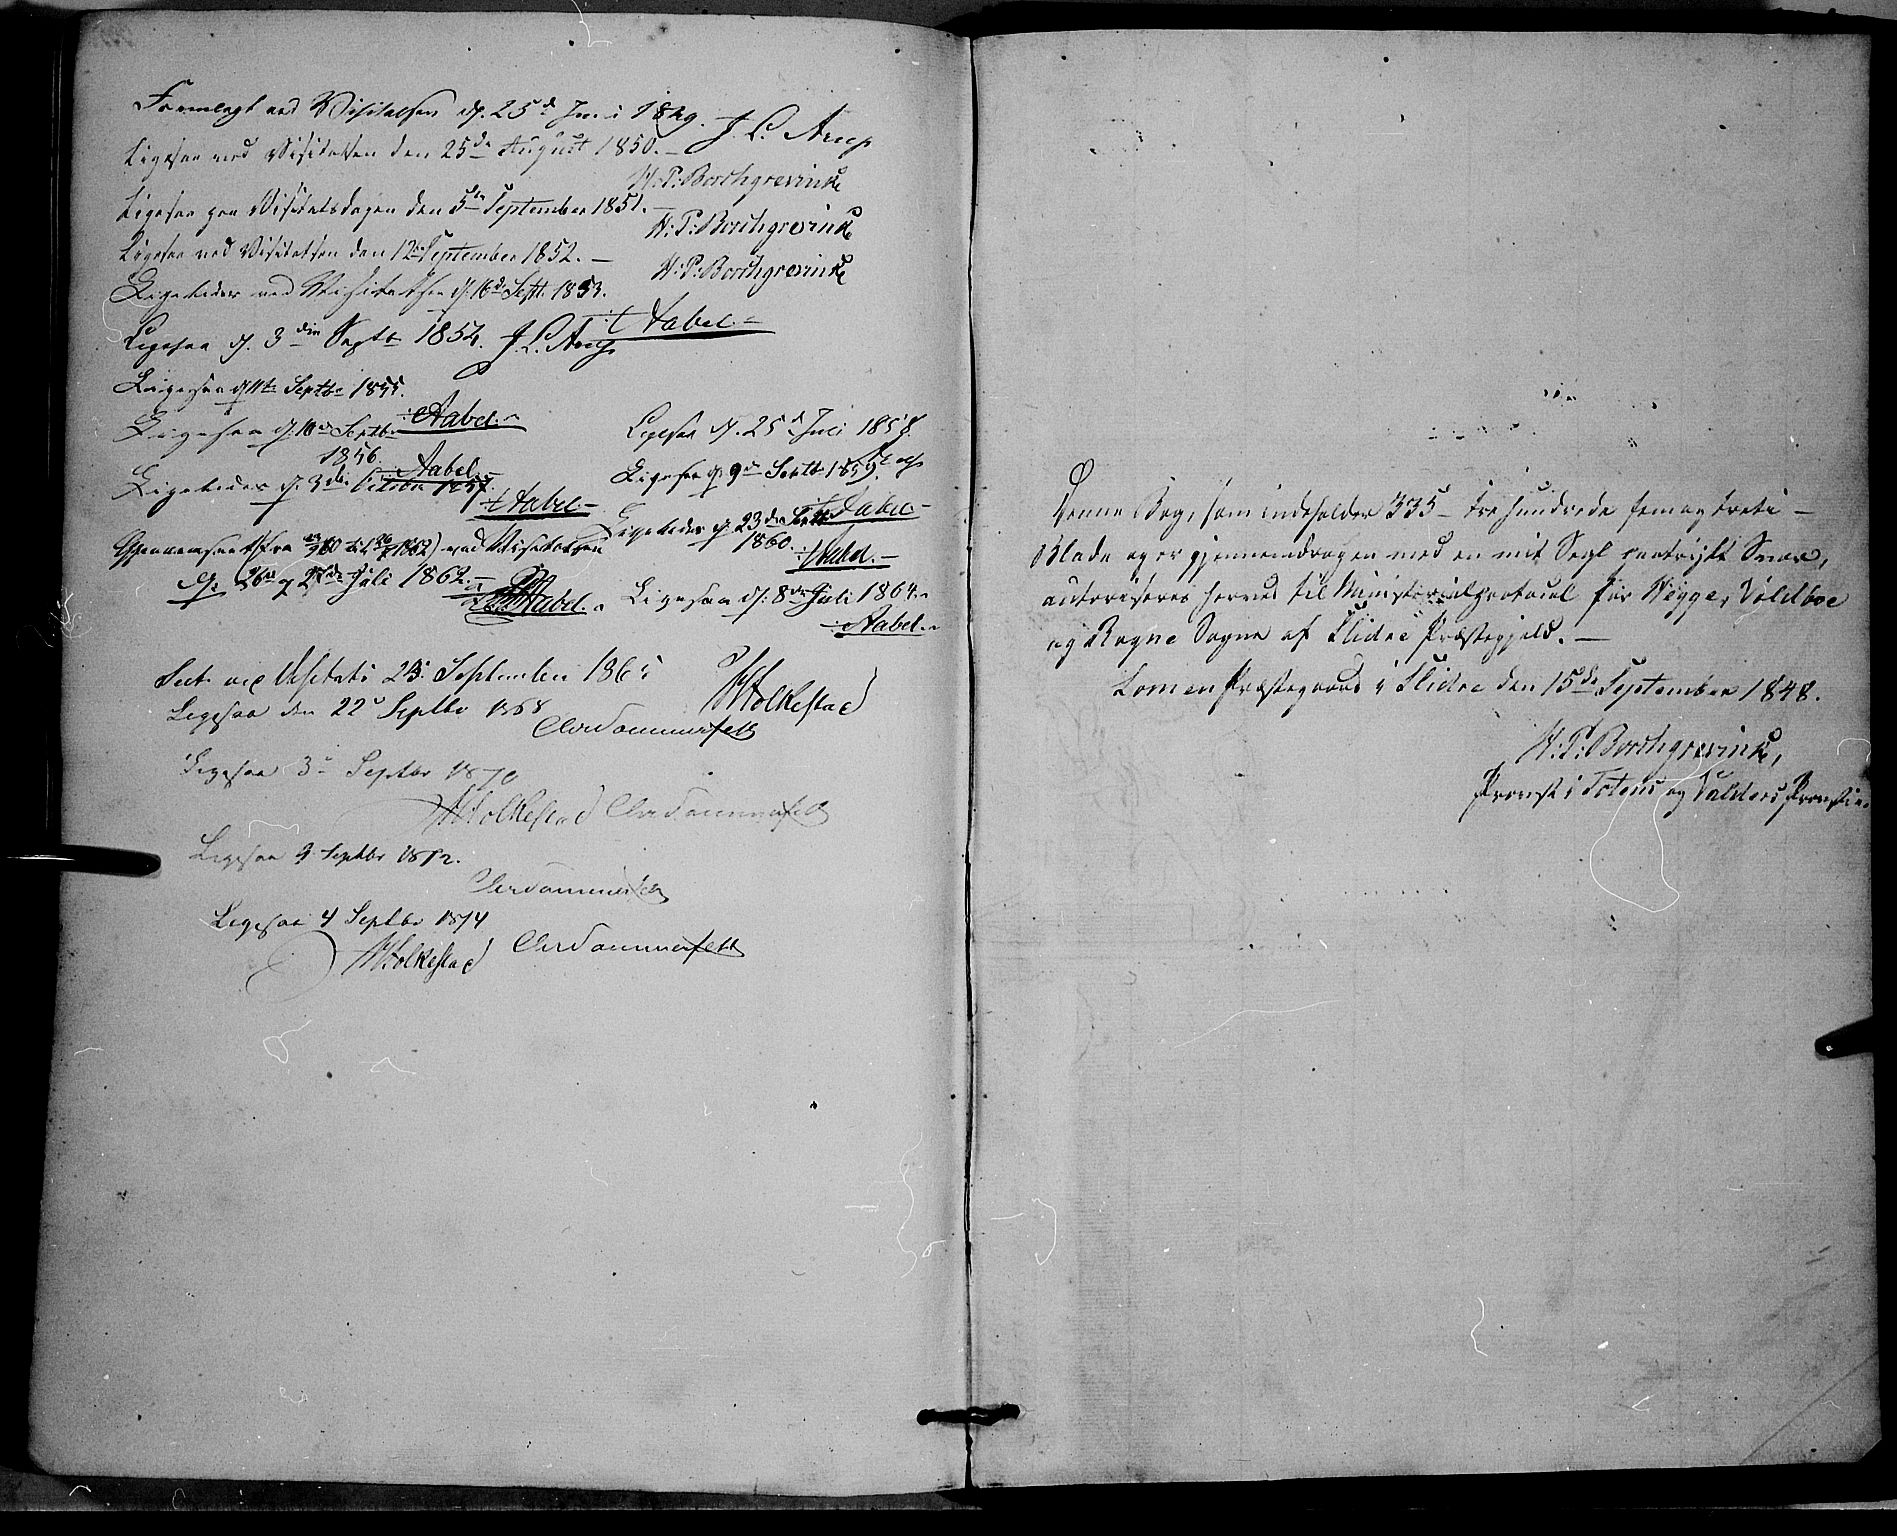 Fremlagt ved Visitatsen d. 25de Juni 1849. J. L. Arup
Ligesaa ved Visitatsen den 25de August 1850. –
H: P: Borchgrevink
Ligesaa paa Visitatsdagen den 5te September 1851. –
H: P: Borchgrevink
Ligesaa ved Visitatsen den 12te September 1852. –
H: P: Borchgrevink
Ligeledes ved Visitatsen d. 16de Septbr 1853.
Aabel. –
Ligesaa d. 3die Septbr 1854. J. L. Arup
Ligesaa d. 11te Septbr 1855.
Aabel. –
Ligesaa d. 10de Septbr
1856.
Aabel. –
Ligeledes d. 3die October 1857.
Aabel. –
Ligesaa d. 25de Juli 1858.
Arup
Ligesaa d. 9de Septbr 1859.
Aabel –
Ligeledes d. 23de Septbr
1860.
Aabel. –
Gjennemseet (fra 1862) ved Visitatsen
d. 26de og 27de Juli 1862. –
Aabel. –
Ligesaa d. 8de Juli 1864. –
Aabel. –
Seet ved Visitats 25. September 1865
H Folkestad
Ligesaa den 22de Septbr 1868
Chr Sommerfelt
Ligesaa 3die Septbr 1870
H Folkestad Chr Sommerfelt
Ligesaa 9 Septbr 1872.
Chr Sommerfelt
Ligesaa 4 Septbr 1874
H Folkestad Chr Sommerfelt
Denne Bog, som indeholder 335 – tre hundrede femogtreti –
Blade og er gjennemdragen med en mit Segl paatrykt Snor,
autoriseres herved til Ministerialprotocol for Hegge, Voldboe
og Rogne Sogne af Slidre Præstegjeld. –
Lomen Præstegaard i Slidre den 15de September 1848.
H: P: Borchgrevink,
Provst i Totens og Valders Provstie.